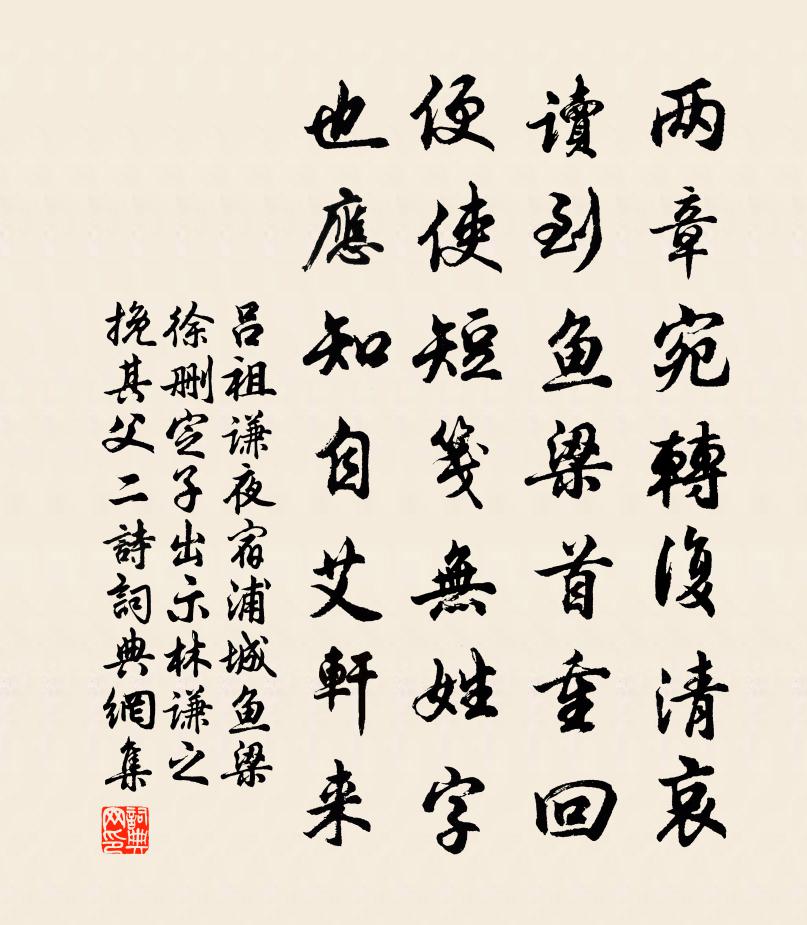 两章宛轉復清哀
讀到鱼梁首重回
便使短箋無姓字
也應知自艾軒来
吕祖谦夜宿浦城鱼梁
徐删定子出示林谦之
挽其父二詩詞典網集
詞典网印